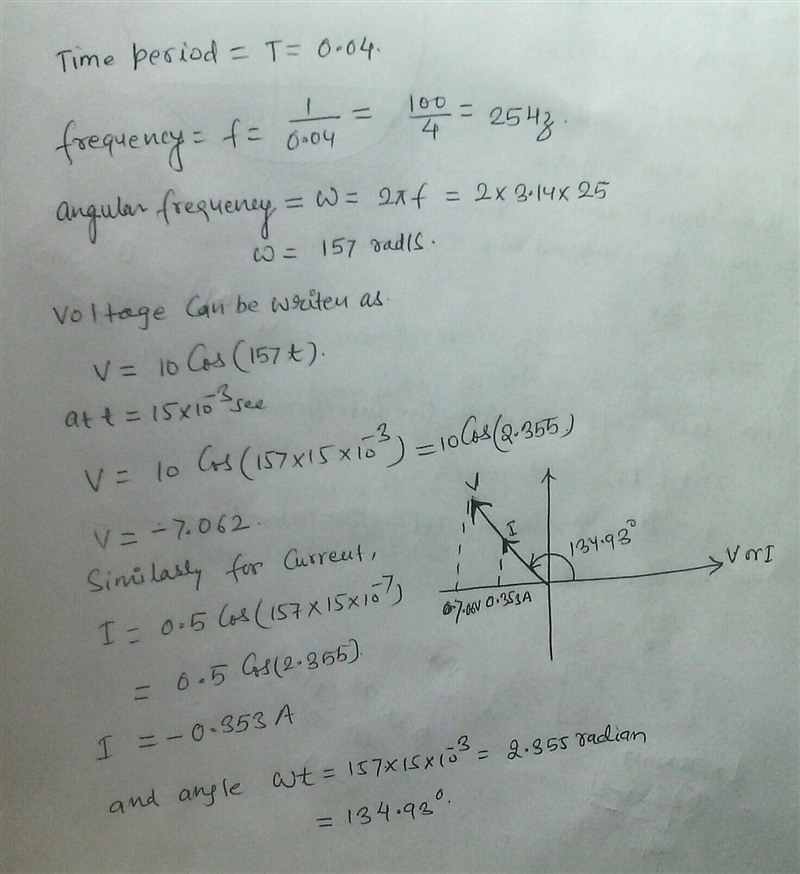 Time period = T = 0.04.
frequency = f = 1/0.04 = 100/4 = 25Hz.
angular frequency = ω = 2πf = 2×3.14×25
ω = 157 rad/s.
Voltage can be writen as
V = 10 Cos(157t).
at t = 15×10⁻³ sec
V = 10 Cos(157×15×10⁻³) = 10 Cos(2.355)
V = -7.062.
Similarly for Current,
I = 0.5 Cos(157×15×10⁻⁷)
= 0.5 Cos(2.355).
I = -0.353 A
and angle ωt = 157×15×10⁻³ = 2.355 radian
= 134.93°.
V
I
134.93°
V or I
0.353A